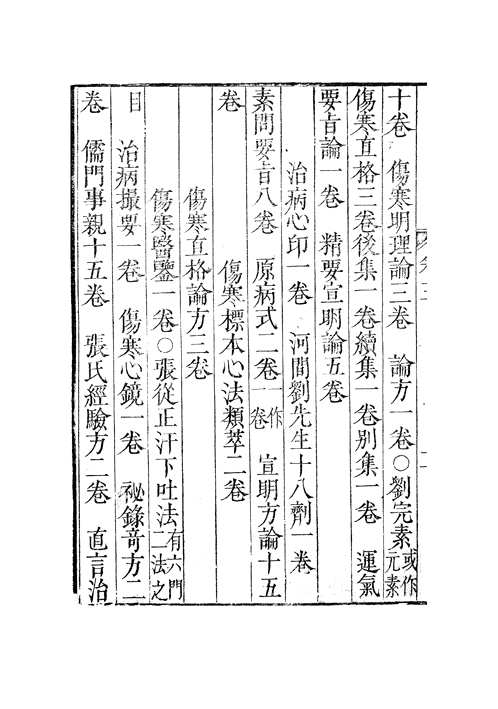 十卷　傷寒明理論三卷　論方一卷○劉完素或作元素
傷寒直格三卷後集一卷續集一卷別集一卷　運氣
要旨論一卷　精要宣明論五卷
治病心印一卷　河間劉先生十八劑一卷
素問要旨八卷　原病式二卷一作一卷　宣明方論十五
卷　傷寒標本心法類萃二卷
傷寒直格論方三卷
傷寒醫鑒一卷○張從正汗下吐法有六門二法之
目　治病撮要一卷　傷寒心鏡一卷　祕錄竒方二
卷　儒門事親十五卷　張氏經驗方二卷　直言治